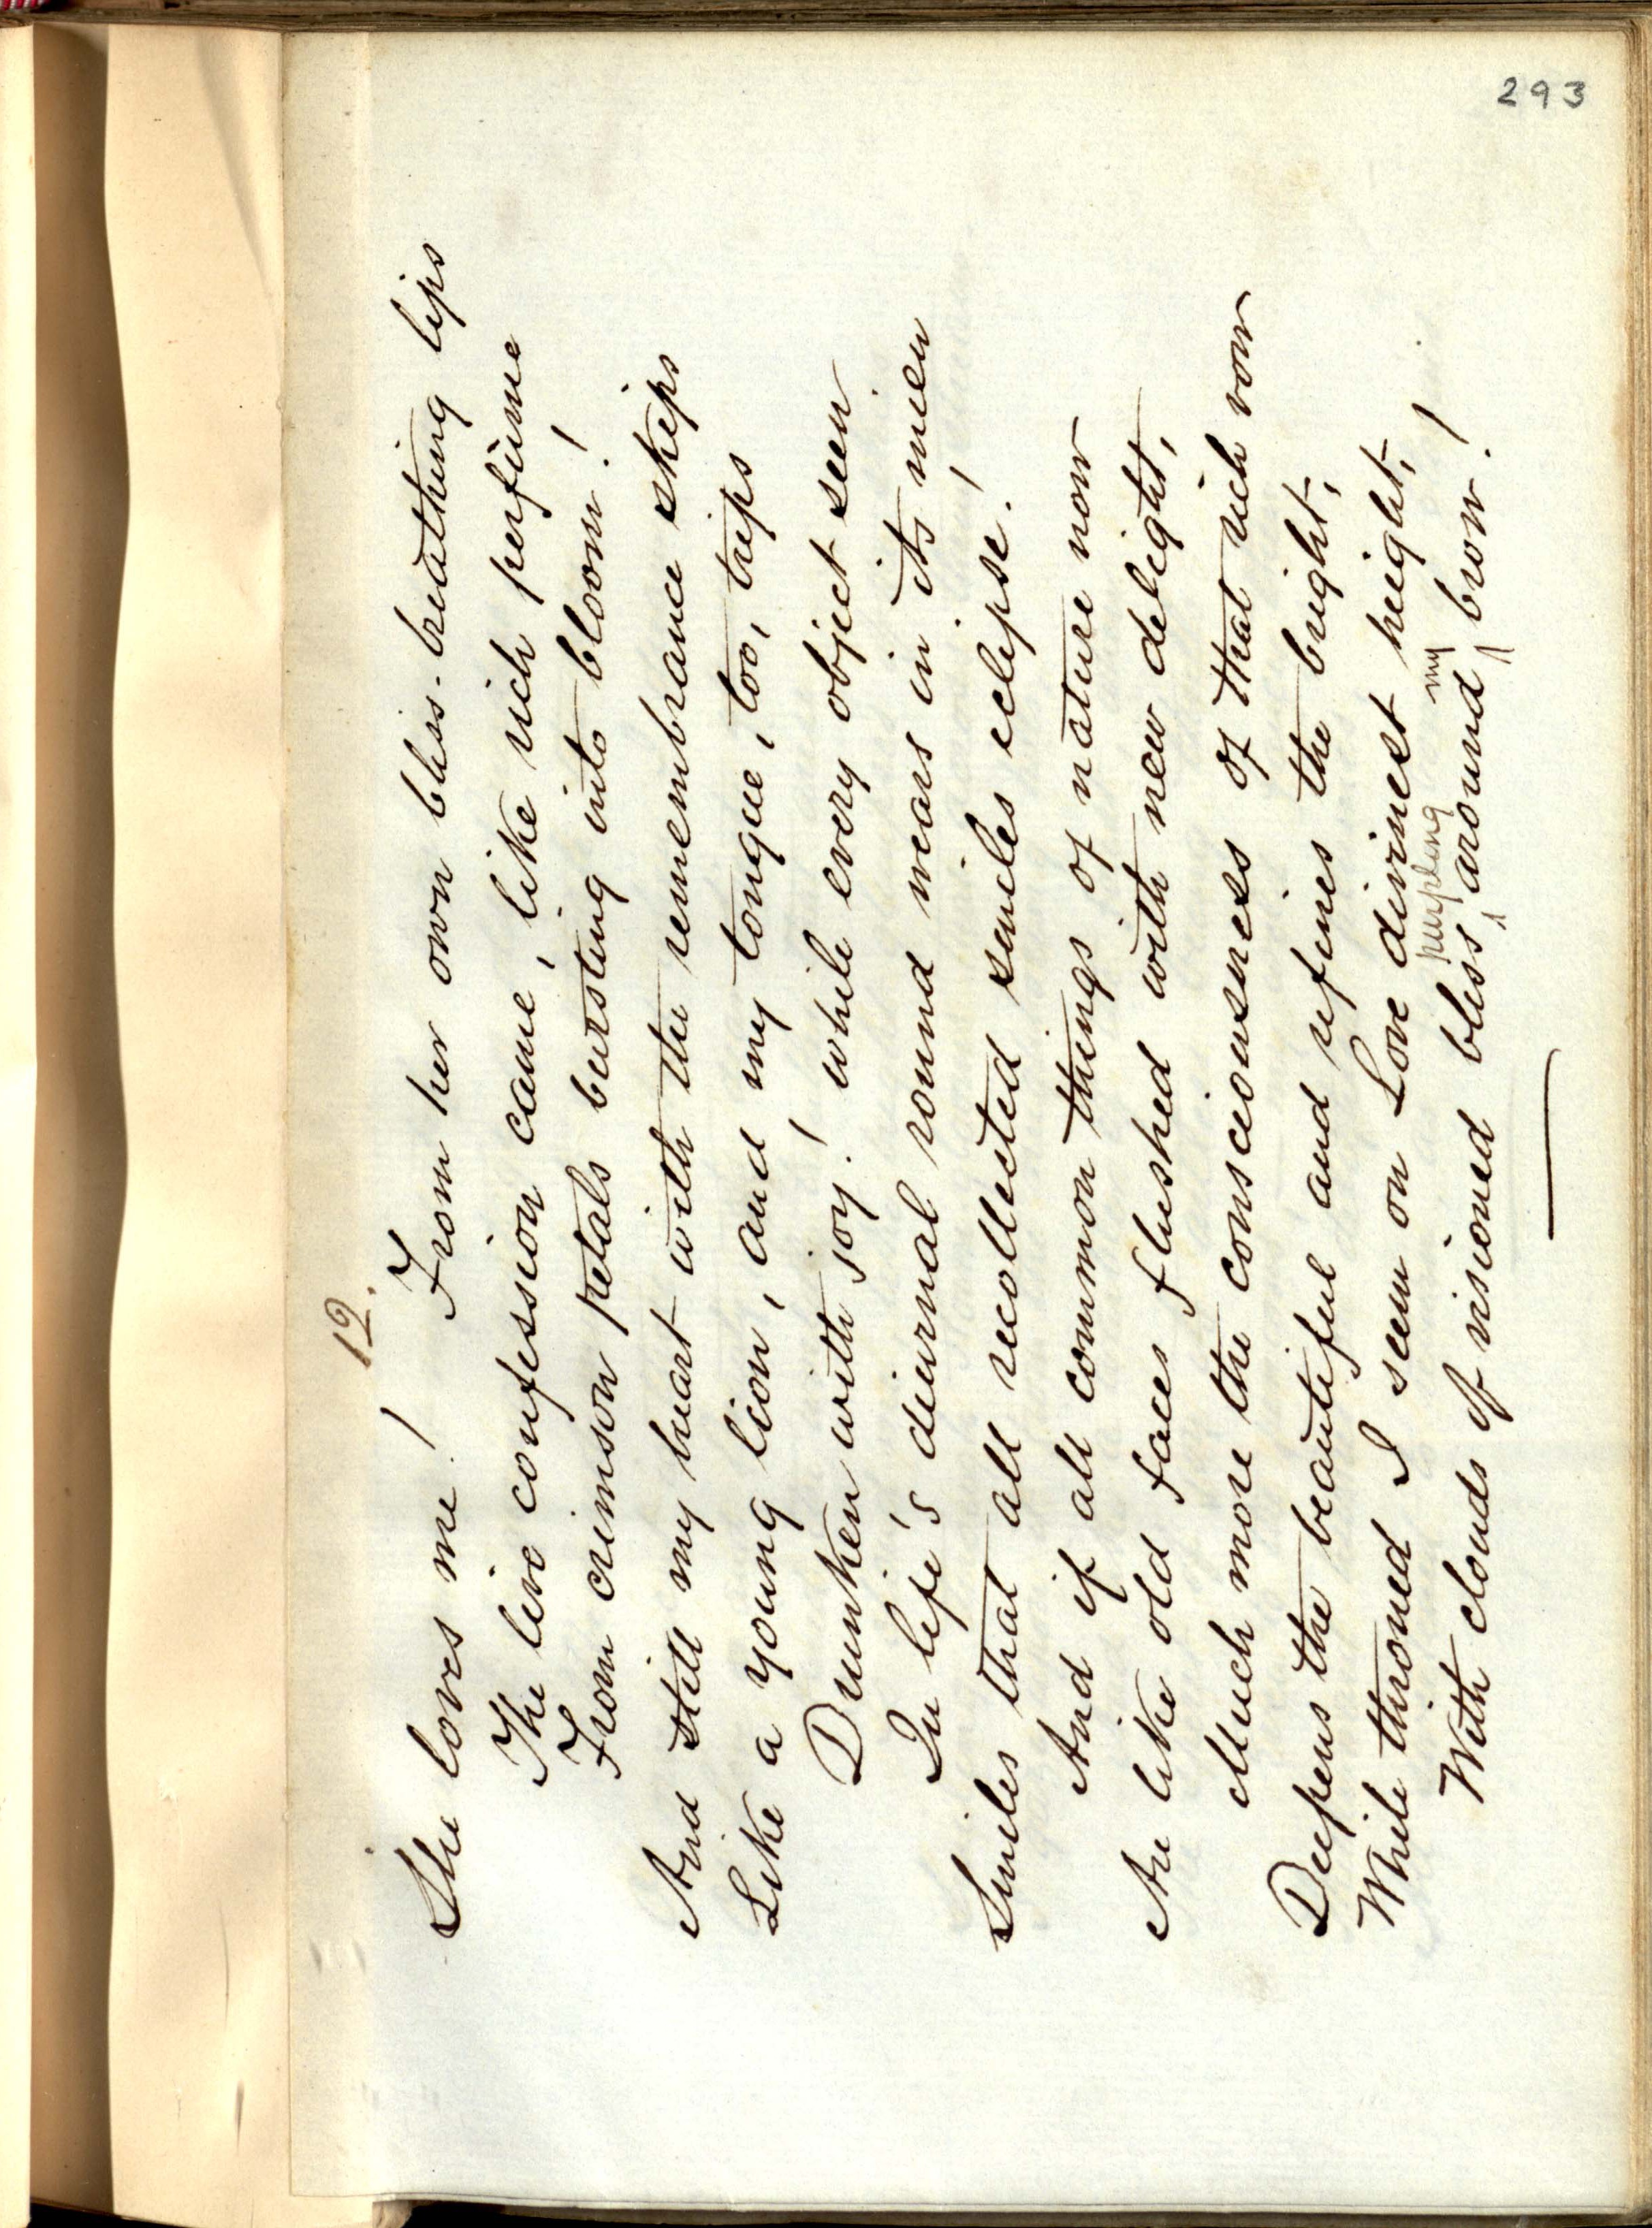 293
12.
She loves me! From her own bliss-breathing lips
The live confession came, like rich perfume
From crimson petals bursting into bloom!
And still my heart with the remembrance skips
Like a young lion, and my tongue, too, trips
Drunken with joy! while every object seen
In life's diurnal round wears in its mien
Smiles that all recollected smiles eclipse!
And if all common things of nature now
Are like old faces flushed with new delight,
Much more the consciousness of that rich vow
Deepens the beautiful and refines the bright,
While throned I seem on Love divinest height,
purpling my
With clouds of visioned bliss ^ around ^ brow!